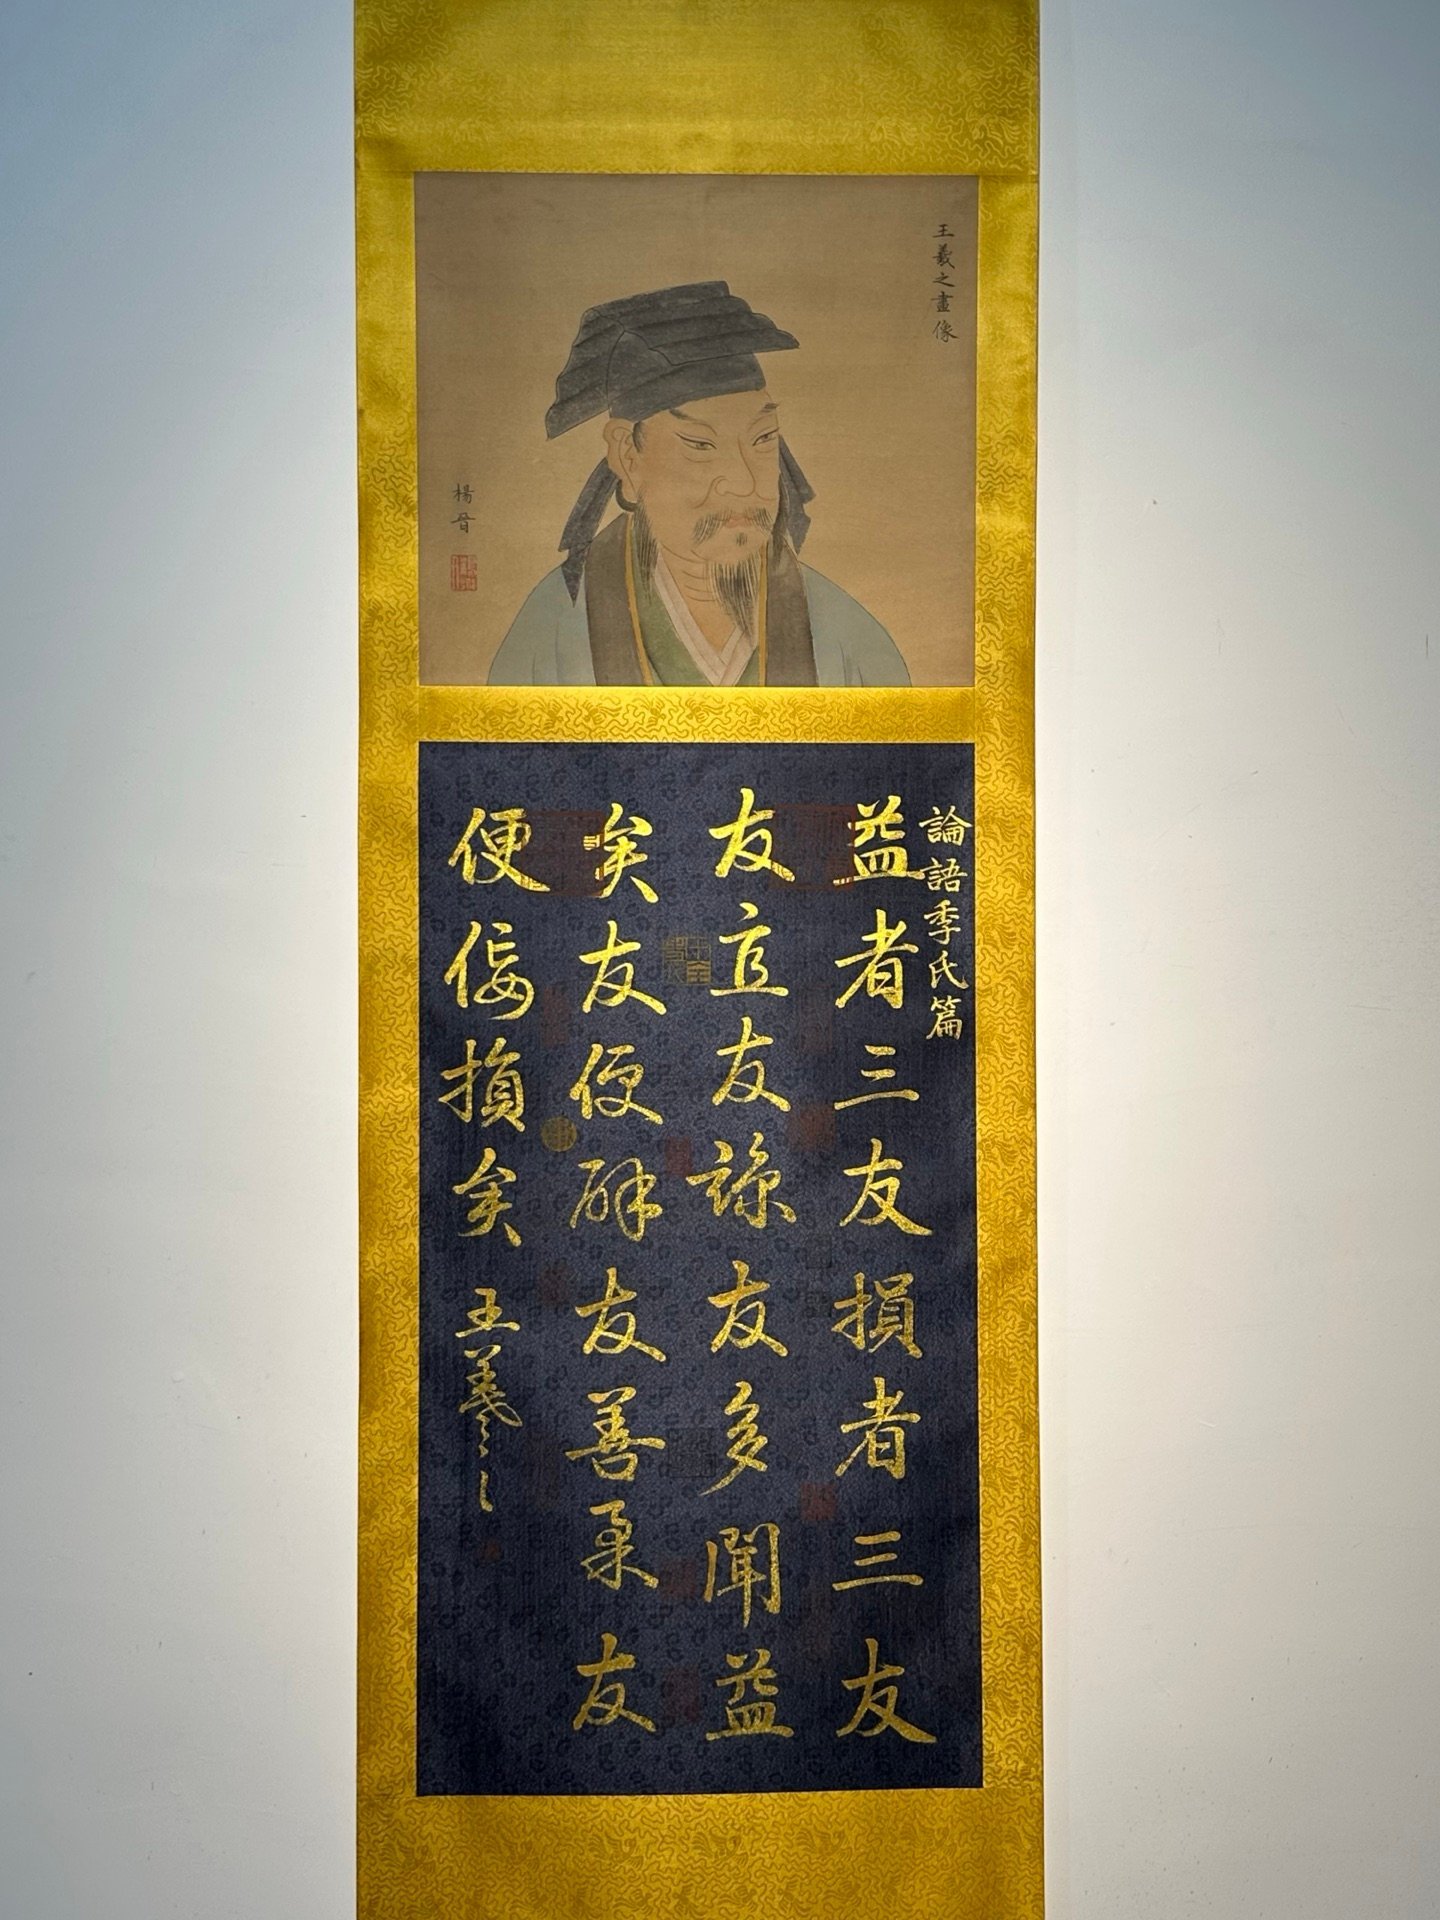 王羲之畫像
楊晉
論語季氏篇
益者三友損者三友
友直友諒友多聞益
矣友便辟友善柔友
便佞損矣 王羲之